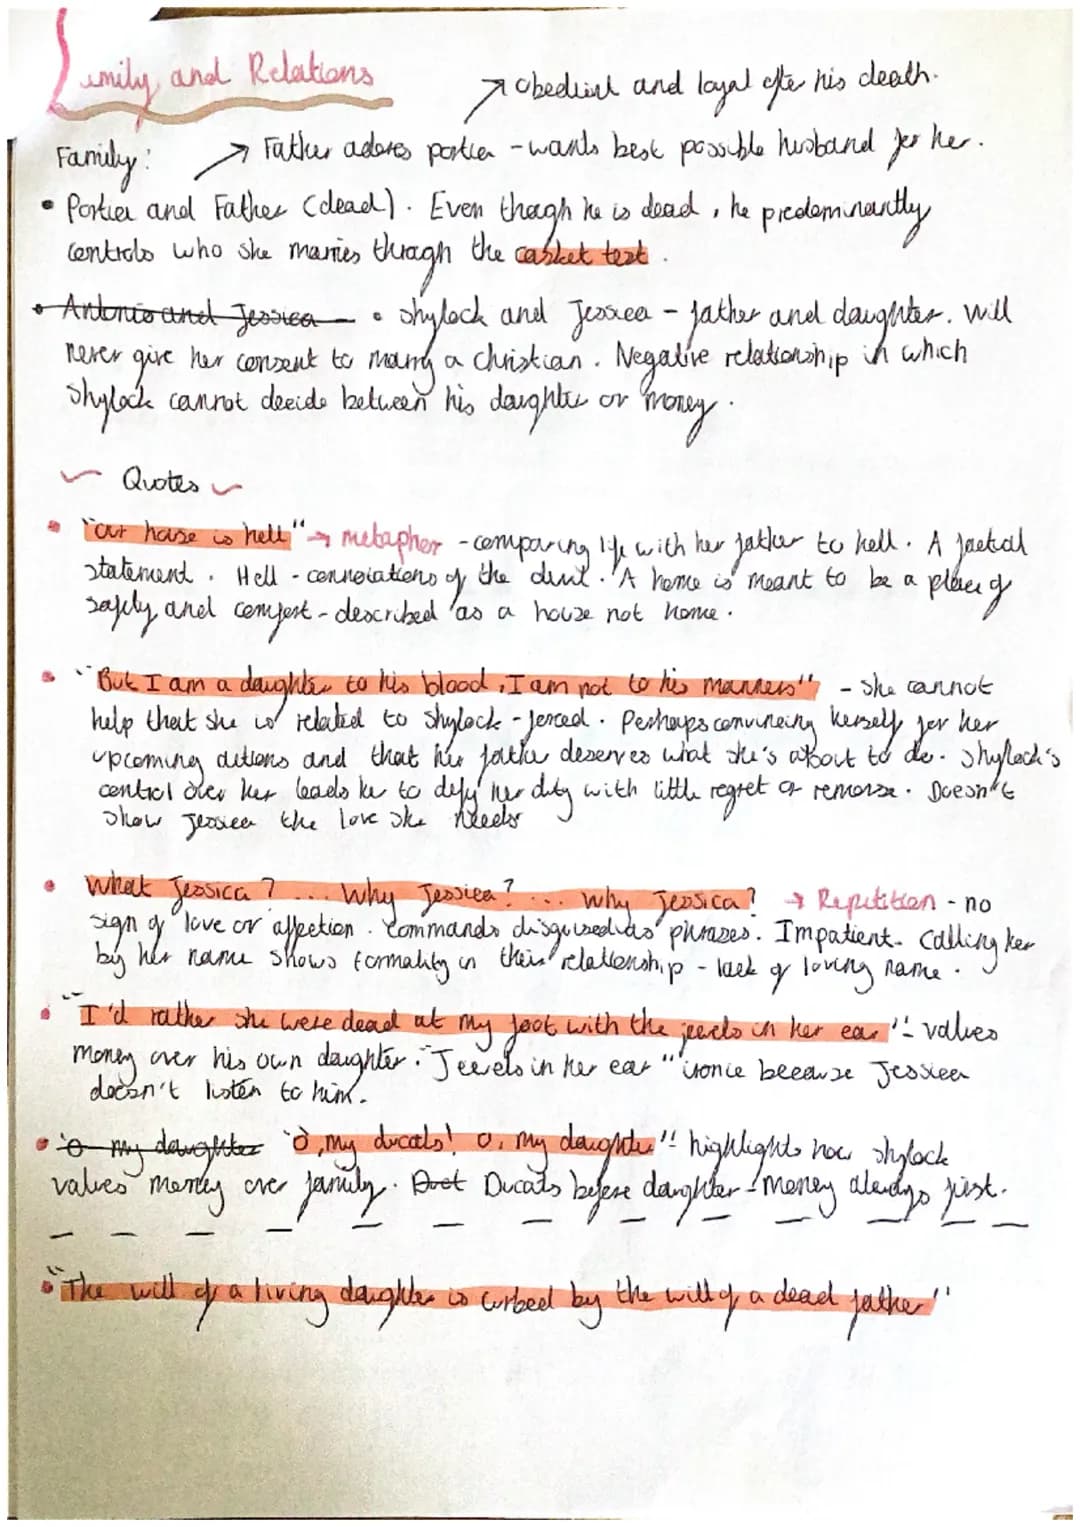 amily and Relations
↗ obedient and loyal after his death.
Family: ↗ Father adores portia - wants best possible husband for her.
• Portia and Father (dead). Even though he is dead, he predominantly
controls who she marries through the casket test.
• ~~Antonio and Jessica~~ • Shylock and Jessica - father and daughter. Will
never give her consent to marry a christian. Negative relationship in which
Shylock cannot decide between his daughter or money.
Quotes
• "our house is hell" → metaphor - comparing life with her father to hell. A factual
statement. Hell - connotations of the devil. A home is meant to be a place of
safety and comfort - described as a house not home.
• "But I am a daughter to his blood, I am not to his manners" - she cannot
help that she is related to Shylock - forced. Perhaps convincing herself for her
upcoming actions and that her father deserves what she's about to do. Shylock's
control over her leads her to defy her duty with little regret or remorse. Doesn't
show Jessica the love she needs
• What Jessica? ... Why Jessica? ... Why Jessica? → Repetition - no
sign of love or affection. Commands disguised as phrases. Impatient. Calling her
by her name shows formality in their relationship - lack of loving name.
• "I'd rather she were dead at my foot with the jewels in her ear" - values
money over his own daughter. "Jewels in her ear" ironic because Jessica
doesn't listen to him.
• ~~'o my daughter~~ 'O, my ducats! O, my daughter" - highlights how Shylock
values money over family. ~~Duct~~ Ducats before daughter - money always first.
• "The will of a living daughter is curbed by the will of a dead father"